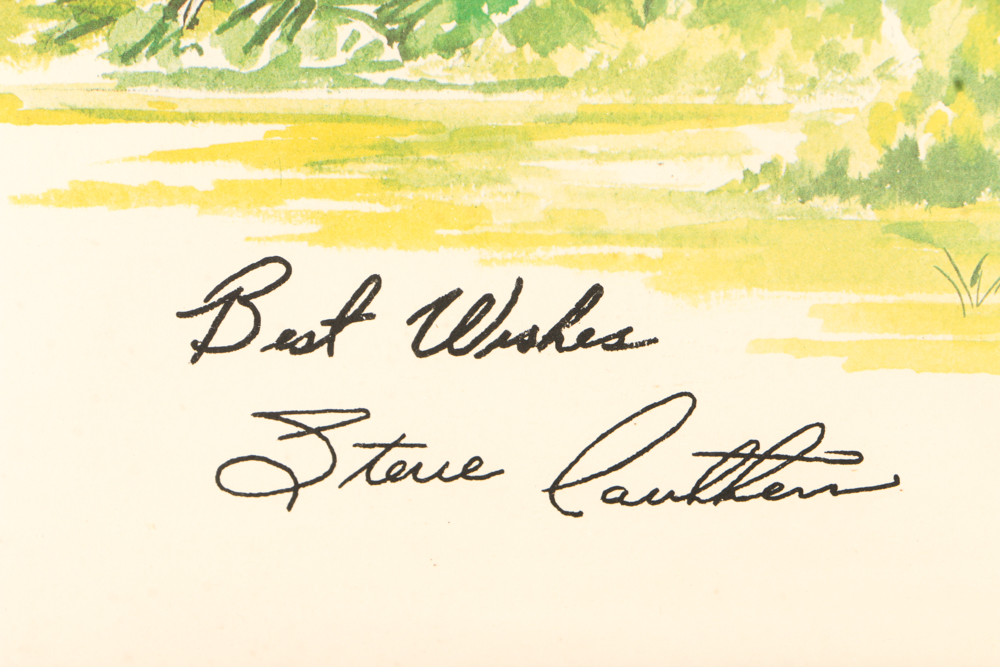 Best Wishes
Steve Cauthen